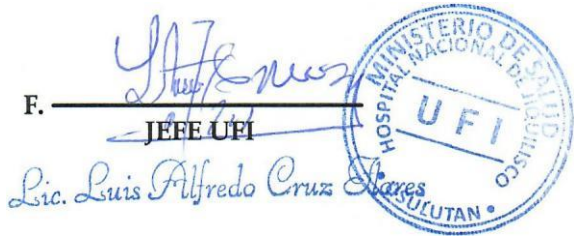 F.
JEFE UFI
Lic. Luis Alfredo Cruz
MINISTERIO DE SALUD
HOSPITAL NACIONAL DE JIQUILISCO
UFI
USULUTAN